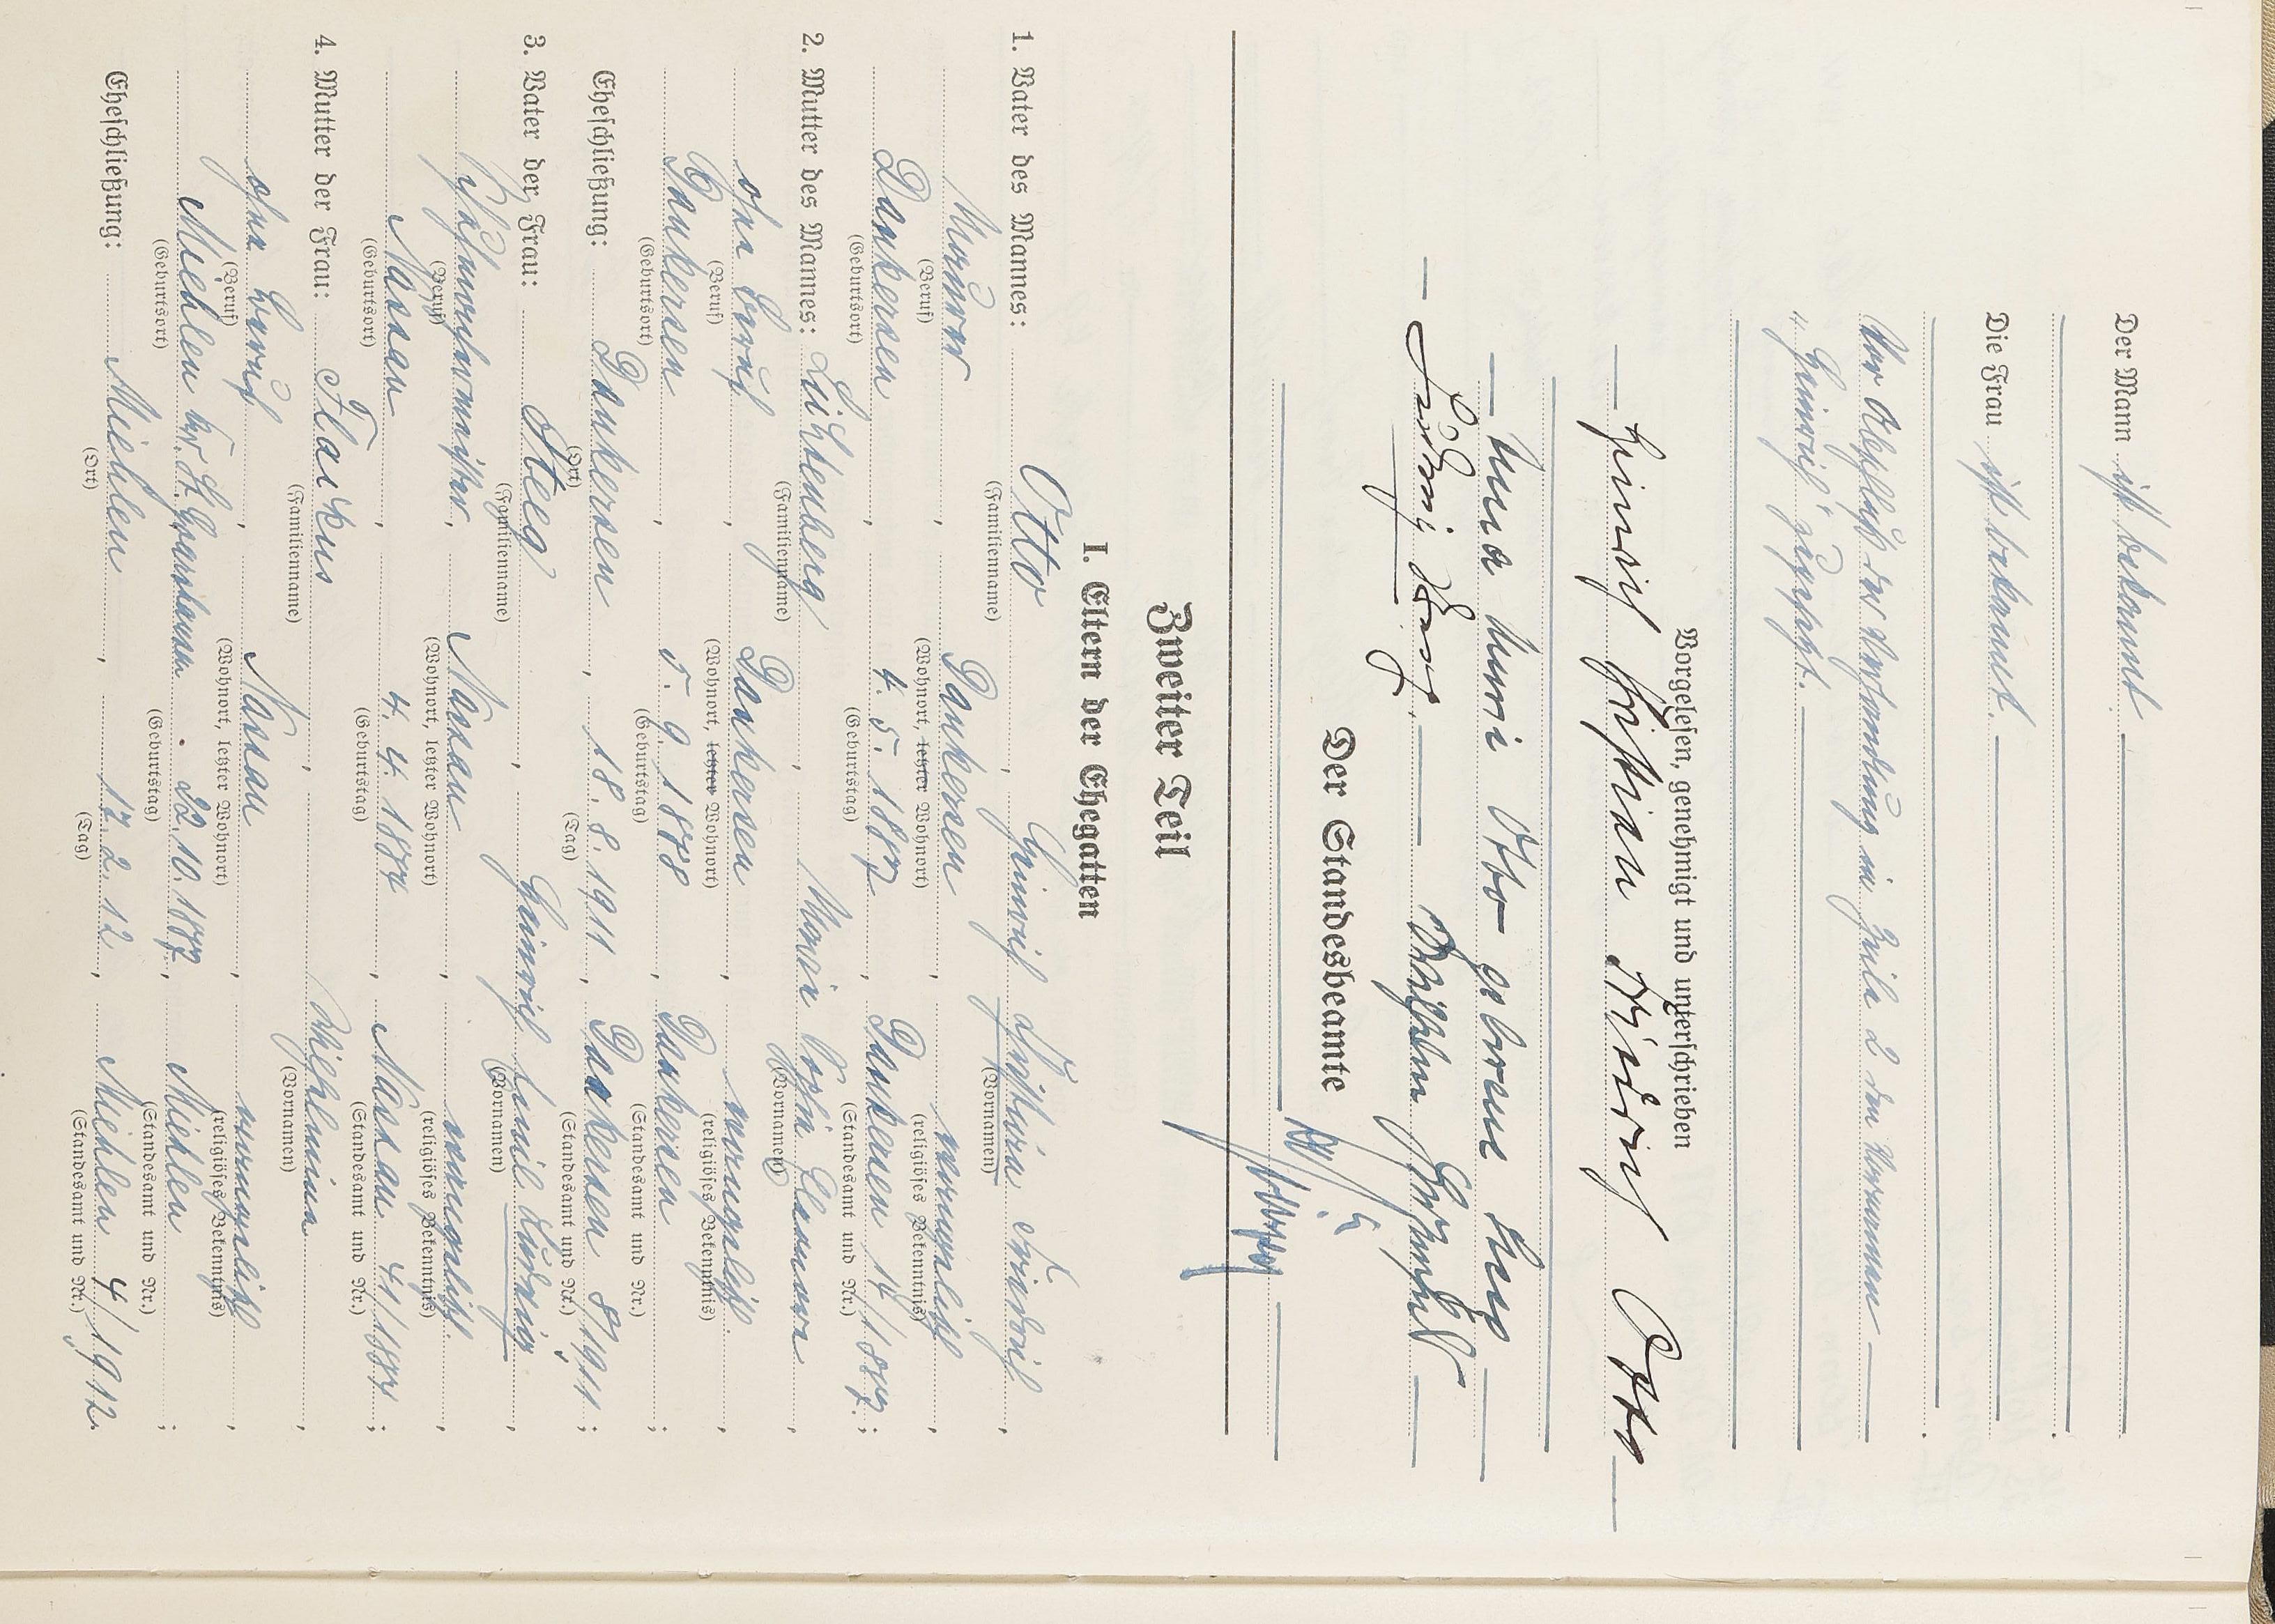 Der Mann ist bekannt.
Die Frau ist bekannt.
Vor Abschluß der Verhandlung in Zeile 2 den Vornamen
„Heinrich“ zugefügt.
Vorgelesen, genehmigt und unterschrieben
Heinrich Christian Friedrich Otto
Anna Otto geborene Steeg
Ludwig Steeg.
Der Standesbeamte
Zweiter Teil
I. Eltern der Ehegatten
1. Vater des Mannes: Otto, Heinrich Friedrich,
(Familienname) (Vornamen)
Maurer, Dankersen, evangelisch,
(Beruf) (Wohnort, letzter Wohnort) (religiöses Bekenntnis)
Dankersen, 4. 5. 1887, Dankersen 14/1887;
(Geburtsort) (Geburtstag) (Standesamt und Nr.)
2. Mutter des Mannes: Lichtenberg, Marie Sofie Eleonore,
(Familienname) (Vornamen)
ohne Beruf, Dankersen, evangelisch,
(Beruf) (Wohnort, letzter Wohnort) (religiöses Bekenntnis)
Dankersen, 5. 9. 1888, Dankersen;
(Geburtsort) (Geburtstag) (Standesamt und Nr.)
Eheschließung: Dankersen, 18. 8. 1911, Dankersen 8/1911;
(Ort) (Tag) (Standesamt und Nr.)
3. Vater der Frau: Steeg, Heinrich Emil Ludwig,
(Familienname) (Vornamen)
Nassau, evangelisch,
(Beruf) (Wohnort, letzter Wohnort) (religiöses Bekenntnis)
Nassau, 4. 4. 1884, Nassau 41/1884;
(Geburtsort) (Geburtstag) (Standesamt und Nr.)
4. Mutter der Frau: Wilhelmine,
(Familienname) (Vornamen)
ohne Beruf, Nassau, evangelisch,
(Beruf) (Wohnort, letzter Wohnort) (religiöses Bekenntnis)
Miehlen Kr. St. Goarshausen, 22. 10. 1887, Miehlen;
(Geburtsort) (Geburtstag) (Standesamt und Nr.)
Eheschließung: Miehlen, 17. 2. 12, Miehlen 4/1912.
(Ort) (Tag) (Standesamt und Nr.)